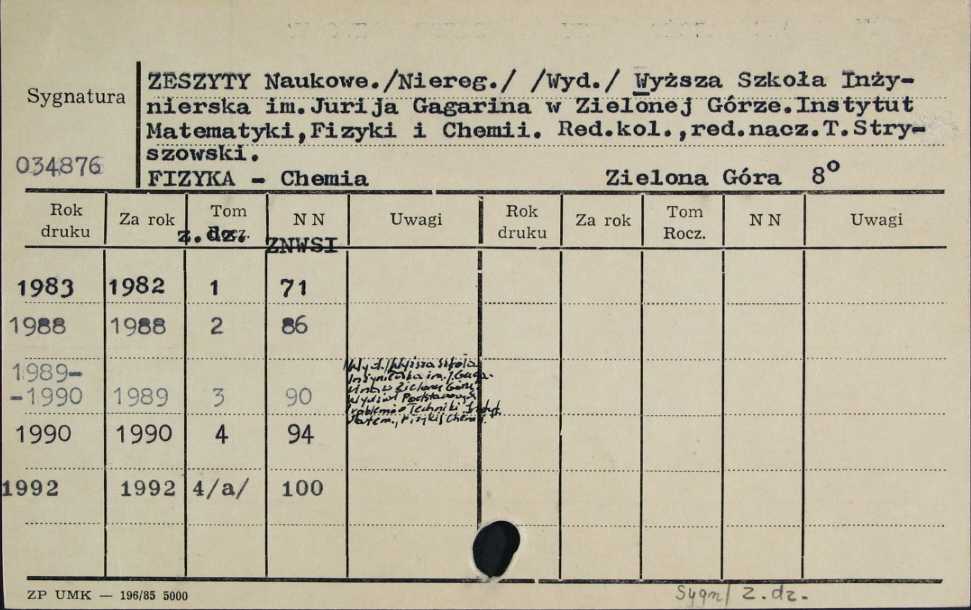 ZESZYTY Naukowe./Niereg./ /Wyd./ Wyższa Szkoła Inży-
Sygnatura
nierska im.Jurija Gagarina w Zielonej Górze.Instytut
Matematyki,Fizyki i Chemii. Red.kol.,red.nacz.T.Stry-
szowski.
034876
FIZYKA - Chemia Zielona Góra 8°
Rok druku Za rok Tom z.dz. N N ZNWSI Uwagi Rok druku Za rok Tom Rocz. N N Uwagi
1983 1982 1 71
1988 1988 2 86
1989-
-1990 1989 3 90
Wyd./Wyższa Szkoła
Inżynierska im. J. Gaga-
rina w Zielonej Górze.
Wydział Podstawowych
Problemów Techniki Instyt.
Matem., Fizyki i Chemii.
1990 1990 4 94
1992 1992 4/a/ 100
ZP UMK — 196/85 5000
Sygn/ z.dz.